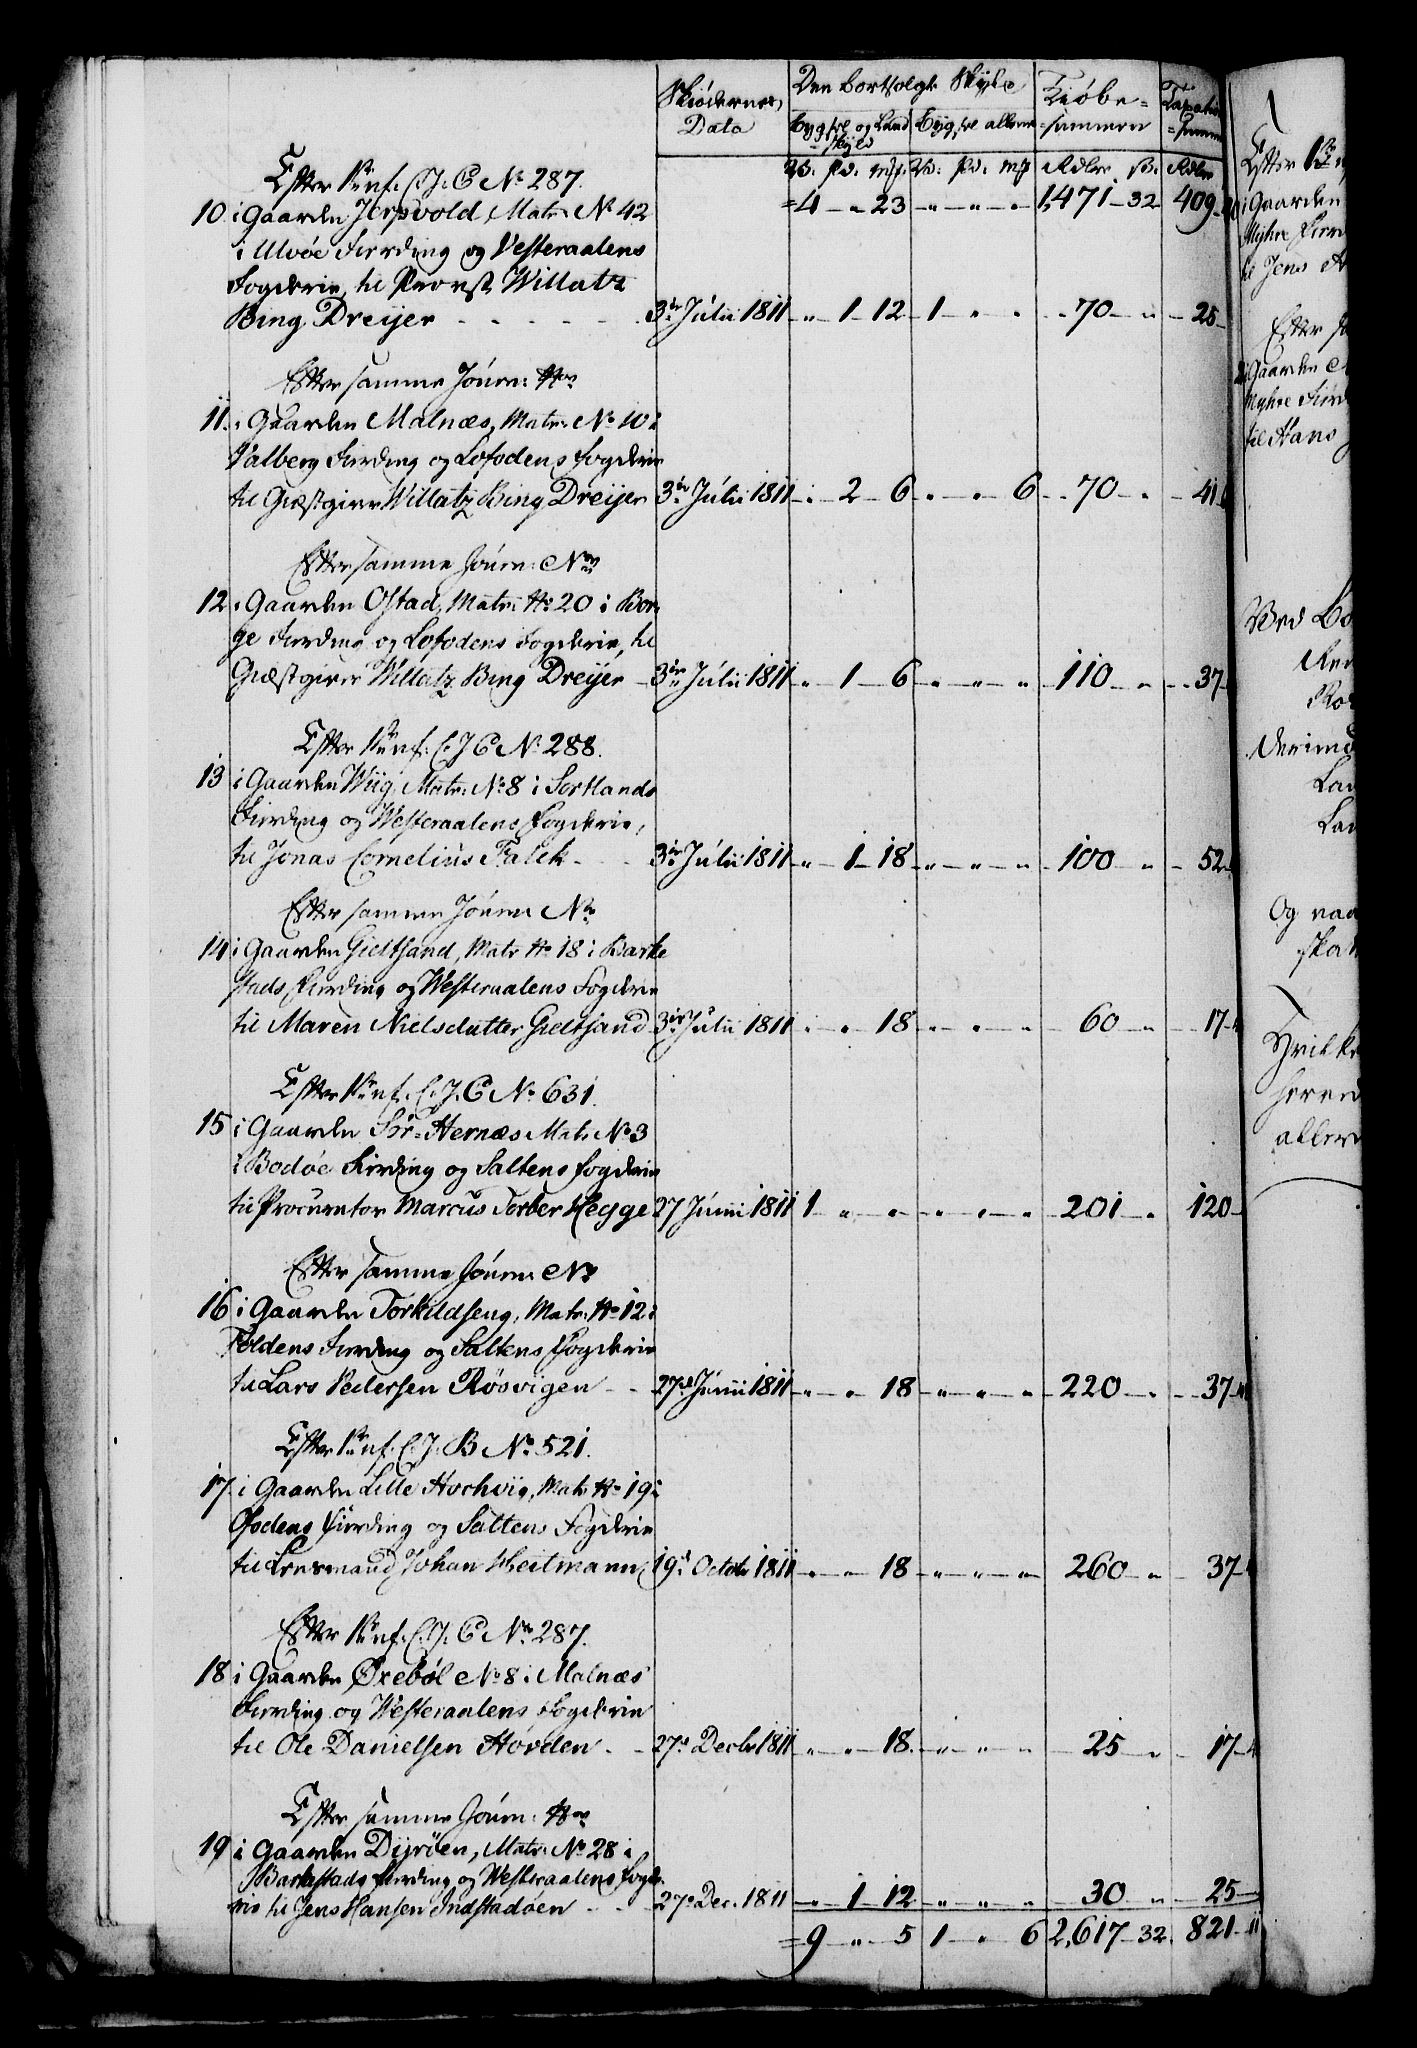 Skiödernes Data
Den bortsolgte Skyld
Bygsel og Landskyld
Bygsel allene
Kiöbesummen
Taxations summe
V. Pd. mk. V. Pd. mk Rdlr ß. Rdlr
= 4 „ 23 „ „ „ 1,471 - 32 409
Efter Kunf. C. J. C No 287.
10 i Gaarden Jerpvold, Matr. No 42
i Ulvöe Fierding og Vesteraalens
Fogderie, til Provst Willatz
Bing Dreijer - - - 3die Julii 1811 „ 1 12 1 „ „ 70 „ 25
Efter samme Journ: No
11. i Gaarden Malnæs, Matr. No 10 i
Valberg Fierding og Lofodens Fogderie
til Giæstgiver Willatz Bing Dreijer 3die Julii 1811 „ 2 6 „ „ 6 70 „ 41
Efter samme Journ: No
12. i Gaarden Ostad, Matr: No 20 i Bor-
ge Fierding og Lofodens Fogderie, til
Giæstgiver Willatz Bing Dreijer 3die Julii 1811 „ 1 6 „ „ „ 110 „ 37
Efter Kunf. C. J. C No 288.
13 i Gaarden Wiig, Matr: No 8 i Sortlands
Fierding og Westeraalens Fogderie,
til Jonas Cornelius Falck - 3die Julii 1811 „ 1 18 „ „ „ 100 „ 52
Efter samme Journ No
14 i Gaarden Gieltsand, Matr No 18 i Barke
stads Fierding og Westeraalens Fogderie
til Maren Nielsdatter Gieltsand 3die Julii 1811 „ „ 18 „ „ „ 60 „ 17
Efter Kunf. C. J. C No 631.
15 i Gaarden Sör-Hernæs Matr. No 3
i Bodöe Fierding og Saltens Fogderie
til Procurator Marcus Torber Hegge 27 Junii 1811 1 „ „ „ „ „ 201 „ 120
Efter samme Journ No
16 i Gaarden Torkildseng, Matr: No 12 i
Foldens Fierding og Saltens Fogderie
til Lars Pedersen Rösvigen - - 27de Junii 1811 „ „ 18 „ „ „ 220 „ 37
Efter Kunf. C. J. B No 521.
17. i Gaarden Lille Hochviig, Matr No 19 i
Ofodens Fierding og Saltens Fogderie
til Lensmand Johan Heitmann 19d Octobr 1811 „ „ 18 „ „ „ 260 „ 37
Efter Kunf. C. J. C No 287.
18 i Gaarden Öxeböl No 8 i Malnæs
Fierding og Westeraalens Fogderie
til Ole Danielsen Hovden - 27d Decbr 1811 „ „ 18 „ „ „ 25 „ 17
Efter samme Journ: No
19 i Gaarden Dijröen, Matr: No 28 i
Barkestads Fierding og Westeraalens Fogde-
rie til Jens Hansen Indstadöen - - 27d Dec. 1811 „ 1 12 „ „ „ 30 „ 25
= 9 „ 5 1 „ 6 2,617 32. 821 11
i Gaarden
til Jens
Efter
Gaarden
til Hans
Ved
Og